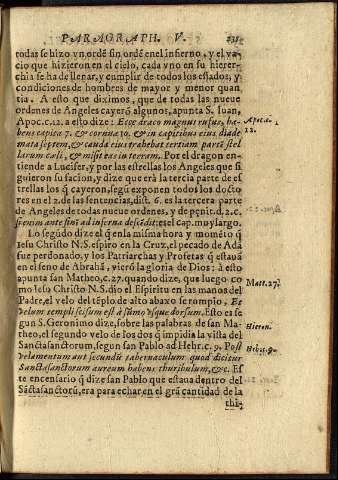 PARAGRAPH. V. 231
todas se hizo vn ordē sin ordē enel infierno, y el va-
cio que hizieron en el cielo, cada vno en su hierer-
chia se ha de llenar, y cumplir de todos los estados, y
condiciones de hombres de mayor y menor quan-
tia. A esto que diximos, que de todas las nueue
ordenes de Angeles cayerō algunos, apunta S. Iuan,
Apoc. c. 12. a esto dize: Ecce draco magnus rufus, ha-
bens capita 7. & cornua 10. & in capitibus eius diade
mata septem, & cauda eius trahebat tertiam partē stel
larum cæli, & misit eas in terram. Por el dragon en-
tiende a Lucifer, y por las estrellas los Angeles que si
guieron su facion, y dize que erā la tercia parte de es
trellas los q̄ cayeron, segū exponen todos los docto
res en el 2. de las sentencias, dist. 6. es la tercera parte
de Angeles de todas nueue ordenes, y de pęnit. d. 2. c.
si enim ante finē ad inferna descēdit: es el cap. muy largo.
Lo segūdo dize q̄ en la misma hora y momēto q̄
Iesu Christo N. S. espiro en la Cruz, el pecado de Adā
fue perdonado, y los Patriarchas y Profetas q̄ estauā
en el seno de Abrahā, vierō la gloria de Dios; à esto
apunta san Matheo, c. 27. quando dize, que luego co
mo Iesu Christo N. S. dio el Espiritu en las manos del
Padre, el velo del tēplo de alto abaxo se rompio, Et
velum templi scisum est à sūmo vsque dorsum, Esto es se
gun S. Geronimo dize, sobre las palabras de san Ma-
theo, el segundo velo de los dos q̄ impidia la vista del
Sancta sanctorum, segun san Pablo ad Hebr. c. 9. Post
velamentum aut secundū tabernaculum quod dicitur
Sancta sanctorum aureum habens thuribulum, &c. Es
te encensario q̄ dize san Pablo que estaua dentro del
Sācta sanctorū, era para echar en el grā cantidad de la
thi-
Apoc. c.
12.
Matt. 27.
Hieron.
Hebr. 9.